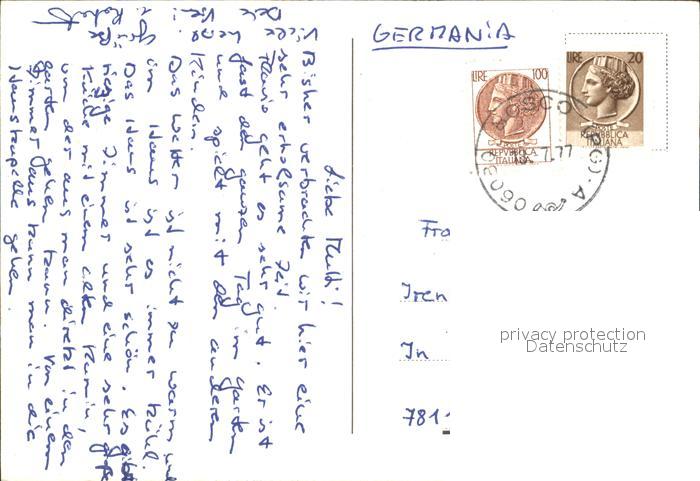 Liebe Mutti!
Bisher verbrachten wir hier eine
sehr erholsame Zeit.
Flavio geht es sehr gut. Er ist
fast den ganzen Tag im Garten
und spielt mit den anderen
Kindern.
Das Wetter ist nicht zu warm und
im Haus ist es immer kühl.
Das Haus ist sehr schön. Es gibt
riesige Zimmer und eine sehr große
Küche mit einem alten Kamin,
von der aus man direkt in den
Garten gehen kann. Von einem
Zimmer aus kann man in die
Hauskapelle gehen.
Viele
Grüße
GERMANIA
LIRE 100
REPVBBLICA
ITALIANA
LIRE 20
REPVBBLICA
ITALIANA
BOSCO (PG) · A
06080
7.77
Fra
Iren
In
781
privacy protection
Datenschutz